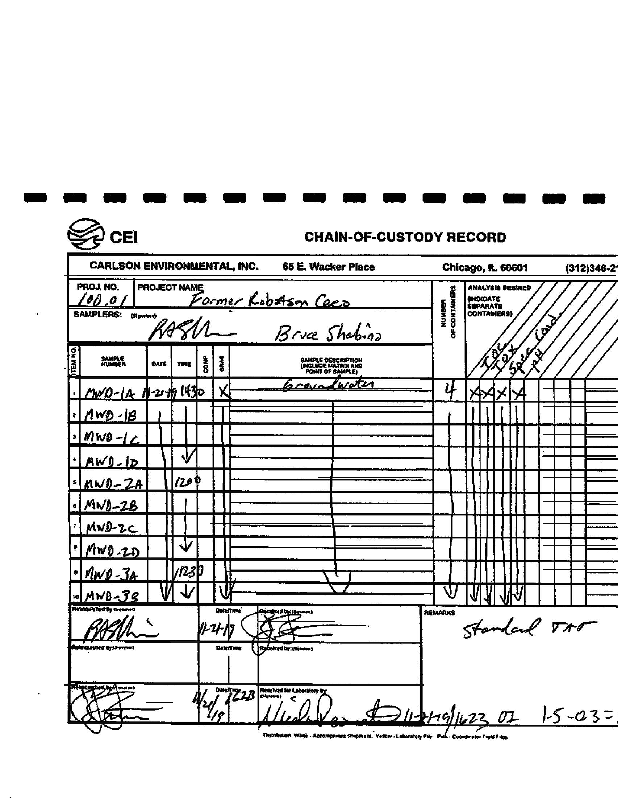 CEI
CHAIN-OF-CUSTODY RECORD
CARLSON ENVIRONMENTAL, INC. 65 E. Wacker Place Chicago, IL 60601 (312)346-21
PROJ. NO. PROJECT NAME
100.01 Former Robertson Ceco
SAMPLERS: (Signature)
Bruce Shabino
NUMBER OF CONTAINERS
ANALYSIS DESIRED
(INDICATE
SEPARATE
CONTAINERS)
TOC
TOX
Spec. Cond.
pH
ITEM NO. SAMPLE NUMBER DATE TIME COMP GRAB SAMPLE DESCRIPTION (INCLUDE MATRIX AND POINT OF SAMPLE)
1 MWD-1A 11-21-19 1430 X Groundwater 4 X X X X
2 MWD-1B
3 MWD-1C
4 MWD-1D
5 MWD-2A 1200
6 MWD-2B
7 MWD-2C
8 MWD-2D
9 MWD-3A 1230
10 MWD-3B
Relinquished by (Signature) Date/Time Received by (Signature) REMARKS
11-21-19 Standard TAT
Relinquished by (Signature) Date/Time Received by (Signature)
Relinquished by (Signature) Date/Time Received for Laboratory by (Signature)
11/21/19 1623 11-21-19/1623 02 1-5-03=